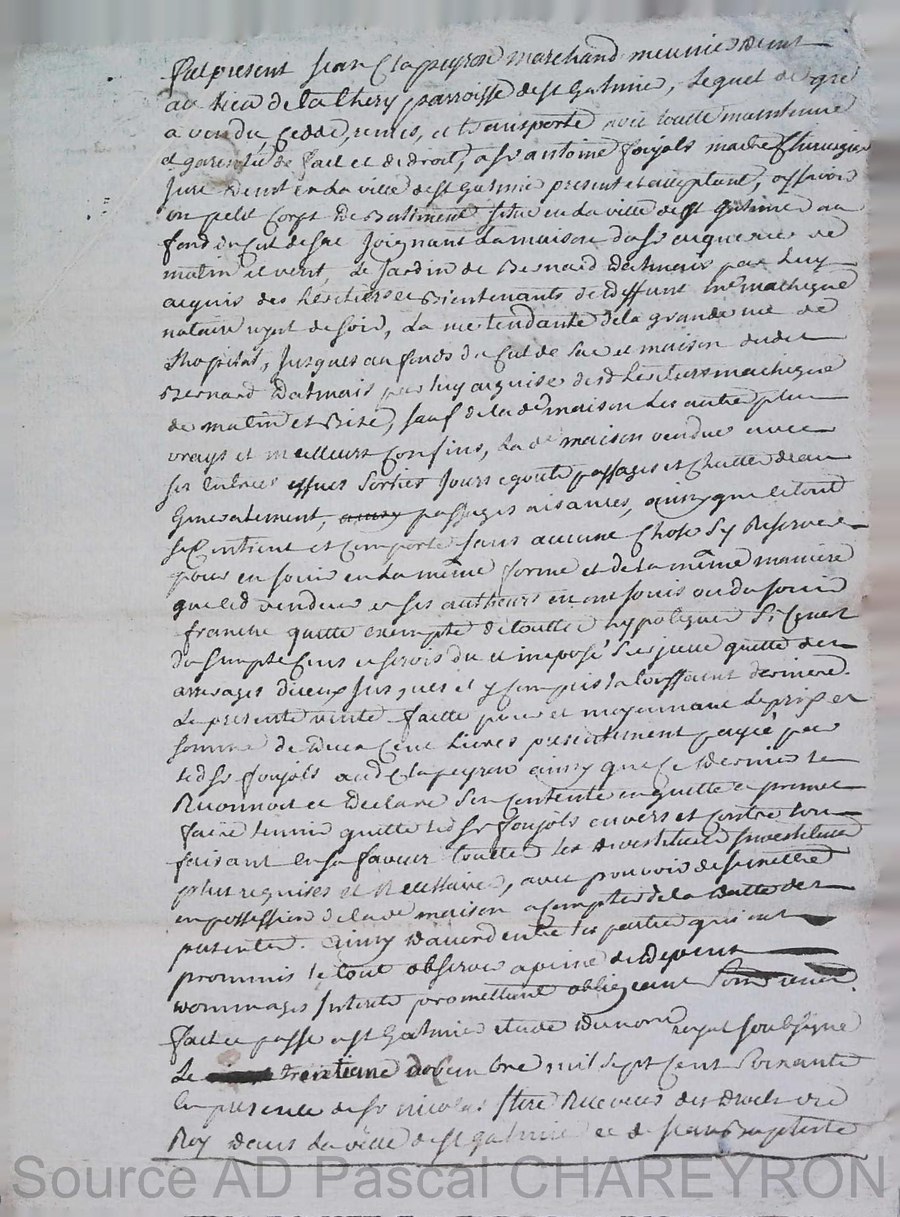 fut présent Jean Clapeyron marchand meunier demt
au lieu de la thery parroisse de st Galmier, lequel de gré
a vendu cedde, remis, et transporté avec toutte maintenue
et garentie de fait et de droit, a sr antoine foujols maitre Chirurgien
juré demt en la ville de st Galmier present et acceptant, assavoir
un petit Corps de Batiment situé en la ville de st Galmier au
fond du Cul de sac joignant la maison du sr de
matin et vent, le Jardin de Bernard Dalmais par luy
acquis des heritiers et Bientenants de deffunt me machigue
notaire royal de soir, la rue tendante de la grande rue de
l'hopital, jusques au fonds du Cul de sac et maison dudit
Bernard Dalmais par luy acquise desd heritiers machigue
de matin et Bize, sauf de lade maison les autre plus
vrays et meilleurs Confins, la de maison vendue avec
ses entrées issues sorties jours egouts passages et Chutte deau
Generalement, passages aisances, ainsy que le tout
se Contient et Comporte sans aucune Chose s'y Reserver
pour en jouir en la même forme et de la même maniere
que led vendeur et ses autheurs en ont jouis ou du jouir
franche quitte exempte de toutte hypoteque si Cen'est
du simple Cens et servis du et imposé sur icelle quitte des
arrerages diceux jusques et y Compris la toussaint derniere.
La presente vente faitte pour et moyennant le prix et
somme de deux Cent livres presentement payée par
led sr foujols aud Clapeyron ainsy que Ce dernier le
Reconnoit et declare s'en Contente en quitte et promet
faire tenir quitte led sr foujols envers et Contre tous
faisant en sa faveur touttes les devestitures investitures
plus requises et Necessaires, avec pouvoir de se mettre
en possession de lade maison a Compter de la datte des
presentes. ainsy daccord entre les parties qui ont
prommis le tout observer a peine de depens
dommages Interets promettant obligeant renon
fait et passé a st Galmier etude du nore royal soubsigné
Le trentieme decembre mil sept Cent soixante
En presence de sr nicolas Receveur des droits du
Roy dans la ville de st Galmier et de Jean Baptiste
Source AD Pascal CHAREYRON